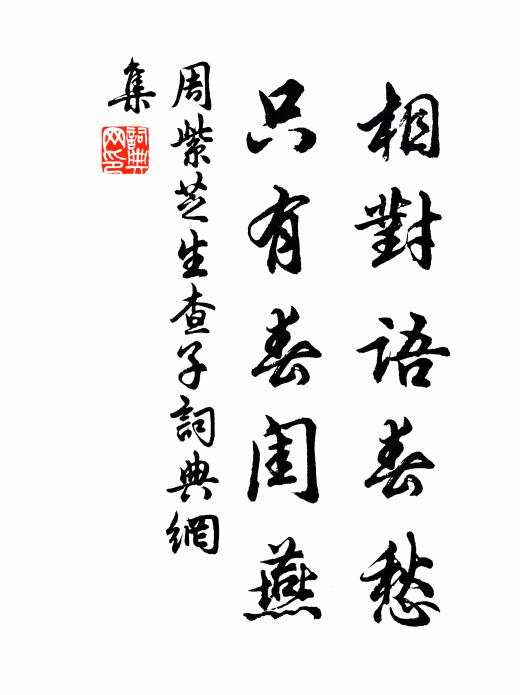 相對語春愁
只有春閨燕
周紫芝生查子詞典網
集
詞典網印